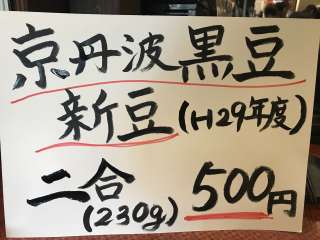 京丹波黒豆
新豆(H29年度)
二合(230g) 500円